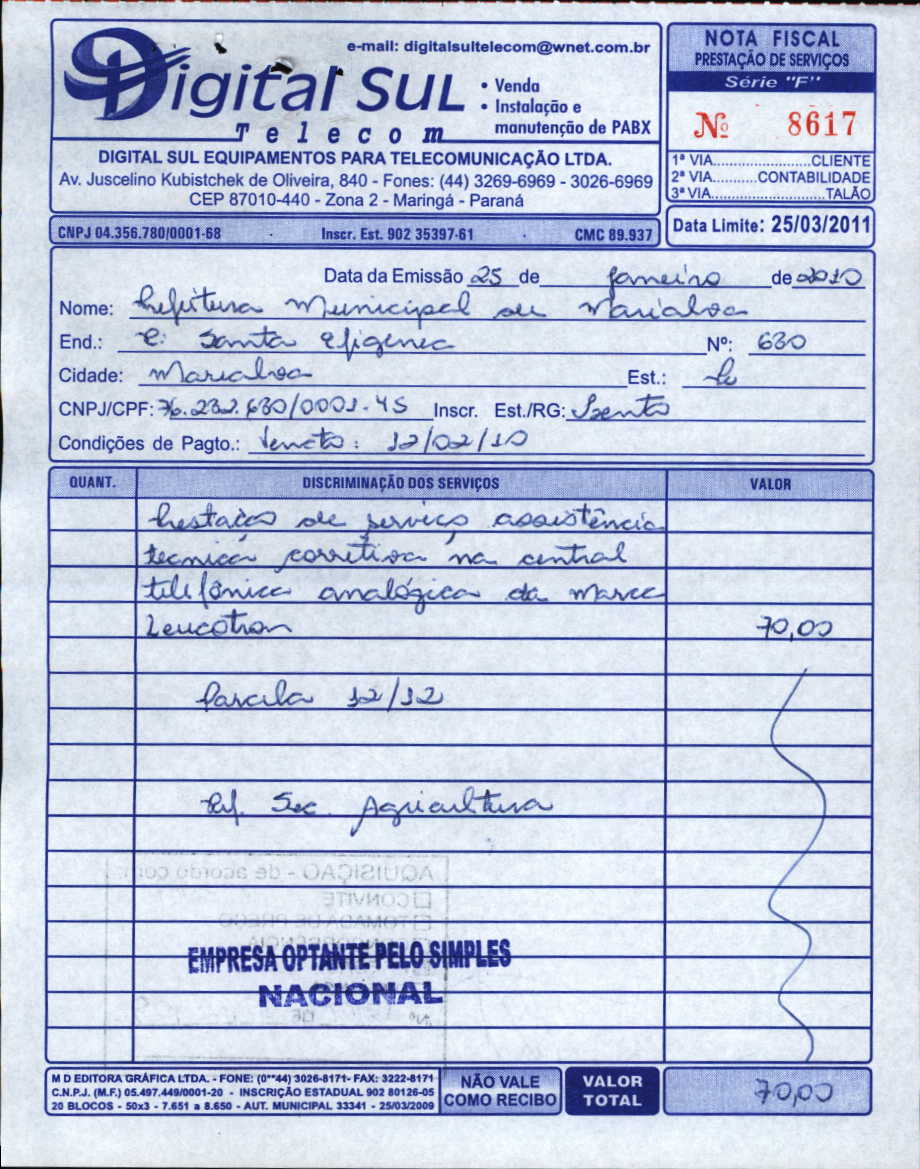 e-mail: digitalsultelecom@wnet.com.br
Digital Sul
Telecom
• Venda
• Instalação e
manutenção de PABX
DIGITAL SUL EQUIPAMENTOS PARA TELECOMUNICAÇÃO LTDA.
Av. Juscelino Kubistchek de Oliveira, 840 - Fones: (44) 3269-6969 - 3026-6969
CEP 87010-440 - Zona 2 - Maringá - Paraná
NOTA FISCAL
PRESTAÇÃO DE SERVIÇOS
Série "F"
Nº 8617
1ª VIA......................CLIENTE
2ª VIA..........CONTABILIDADE
3ª VIA.........................TALÃO
CNPJ 04.356.780/0001-68 Inscr. Est. 902 35397-61 CMC 89.937
Data Limite: 25/03/2011
Data da Emissão 25 de Janeiro de 2010
Nome: Prefeitura Municipal de Marialva
End.: R: Santa Efigenia Nº: 630
Cidade: Marialva Est.: Pr
CNPJ/CPF: 76.282.680/0001-45 Inscr. Est./RG: Isento
Condições de Pagto.: Vencto: 12/02/10
QUANT. DISCRIMINAÇÃO DOS SERVIÇOS VALOR
Prestação de serviço assistência
tecnica corretiva na central
telefônica analógica da marca
Leucotron 70,00
Parcela 12/12
Ref. Sec. Agricultura
AQUISIÇÃO - de acordo com
CONVITE
TOMADA DE PREÇO
EMPRESA OPTANTE PELO SIMPLES
NACIONAL
M D EDITORA GRÁFICA LTDA. - FONE: (0**44) 3026-8171- FAX: 3222-8171
C.N.P.J. (M.F.) 05.497.449/0001-20 - INSCRIÇÃO ESTADUAL 902 80126-05
20 BLOCOS - 50x3 - 7.651 a 8.650 - AUT. MUNICIPAL 33341 - 25/03/2009
NÃO VALE
COMO RECIBO
VALOR
TOTAL
70,00